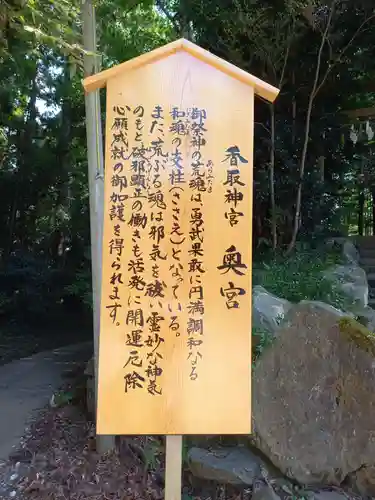 香取神宮 奥宮
御祭神の荒魂は、勇武果敢に円満調和なる
あらみたま
和魂の支柱（ささえ）となっている。
また、荒ぶる魂は邪気を祓い霊妙な神気
のもと破邪顕正の働きも活発に開運厄除
心願成就の御加護を得られます。